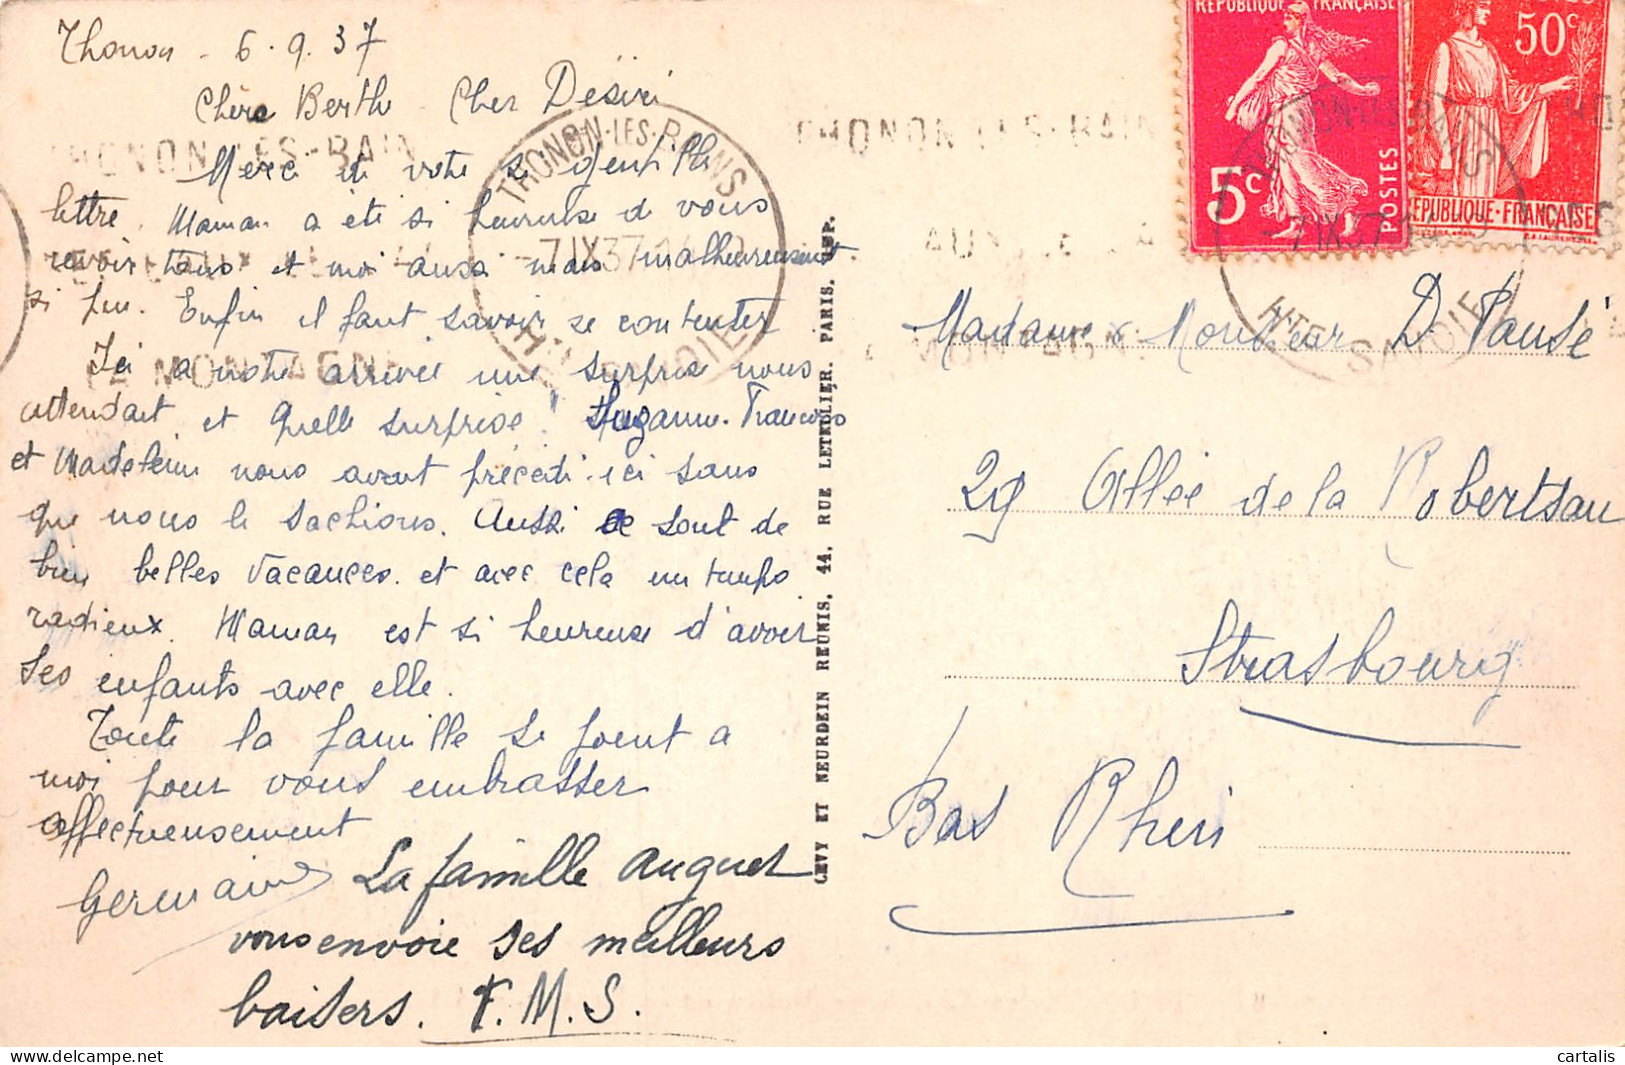 Thonon - 6.9.37
Chère Berthe Cher Désiré
Merci de votre si gentille
lettre. Maman a été si heureuse de vous
revoir tous et moi aussi mais malheureusement
si peu. Enfin il faut savoir se contenter
Ici a notre arrivée une surprise nous
attendait et quelle surprise! Suzanne. Francois
et Madeleine nous avait précédé ici sans
que nous le sachions. Aussi ce sont de
bien belles vacances. et avec cela un temps
radieux. Maman est si heureuse d'avoir
ses enfants avec elle.
Toute la famille se joint a
moi pour vous embrasser
affectueusement
Germaine
La famille Auguet
vous envoie ses meilleurs
baisers. F.M.S.
LEVY ET NEURDEIN REUNIS, 44, RUE LETELLIER. PARIS. IMP.
REPUBLIQUE FRANÇAISE
5c
POSTES
50c
REPUBLIQUE·FRANÇAISE
THONON-LES-BAINS
-7 IX 37
HTE SAVOIE
THONON-LES-BAINS
-7 IX 37
HTE SAVOIE
THONON-LES-BAIN
MONTAGNE
THONON-LES-BAIN
Madame & Monsieur D. Pausé
29 Allée de la Robertsau
Strasbourg
Bas Rhin
cartalis